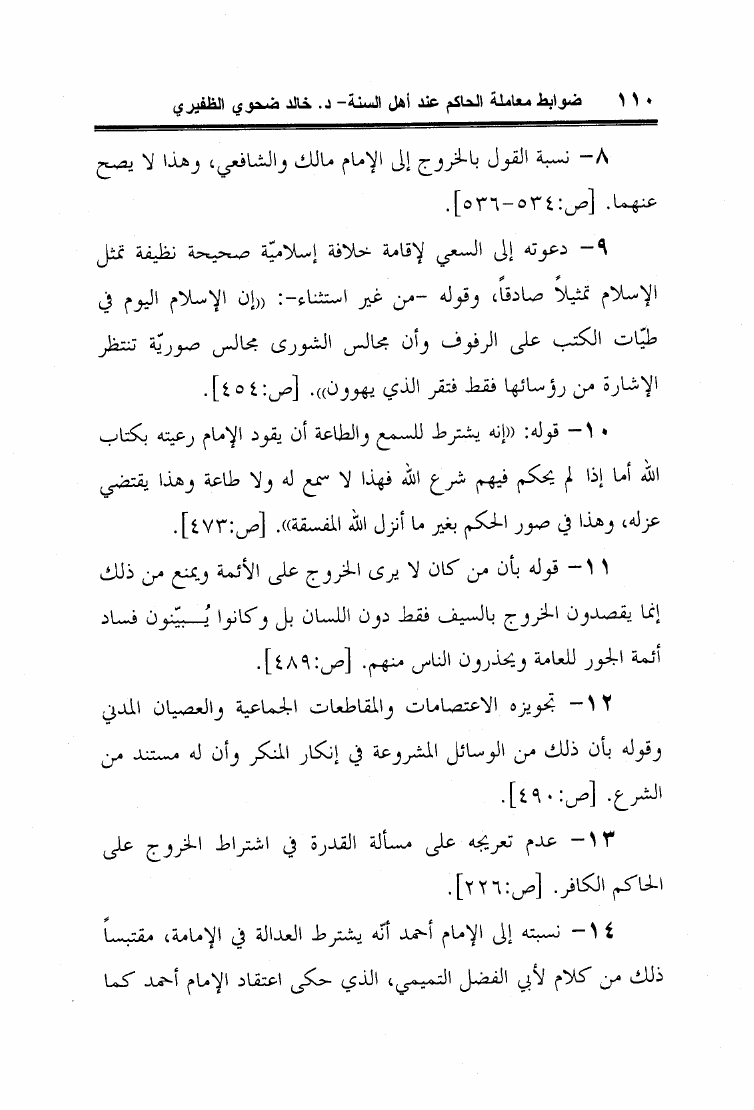 ١١٠ ضوابط معاملة الحاكم عند أهل السنة- د. خالد ضحوي الظفيري
٨- نسبة القول بالخروج إلى الإمام مالك والشافعي، وهذا لا يصح
عنهما. [ص:٥٣٤-٥٣٦].
٩- دعوته إلى السعي لإقامة خلافة إسلاميّة صحيحة نظيفة تمثل
الإسلام تمثيلاً صادقاً، وقوله -من غير استثناء-: ((إن الإسلام اليوم في
طيّات الكتب على الرفوف وأن مجالس الشورى مجالس صوريّة تنتظر
الإشارة من رؤسائها فقط فتقر الذي يهوون)). [ص:٤٥٤].
١٠- قوله: ((إنه يشترط للسمع والطاعة أن يقود الإمام رعيته بكتاب
الله أما إذا لم يحكم فيهم شرع الله فهذا لا سمع له ولا طاعة وهذا يقتضي
عزله، وهذا في صور الحكم بغير ما أنزل الله المفسقة)). [ص:٤٧٣].
١١- قوله بأن من كان لا يرى الخروج على الأئمة ويمنع من ذلك
إنما يقصدون الخروج بالسيف فقط دون اللسان بل وكانوا يُـبيّنون فساد
أئمة الجور للعامة ويحذرون الناس منهم. [ص:٤٨٩].
١٢- تجويزه الاعتصامات والمقاطعات الجماعية والعصيان المدني
وقوله بأن ذلك من الوسائل المشروعة في إنكار المنكر وأن له مستند من
الشرع. [ص:٤٩٠].
١٣- عدم تعريجه على مسألة القدرة في اشتراط الخروج على
الحاكم الكافر. [ص:٢٢٦].
١٤- نسبته إلى الإمام أحمد أنّه يشترط العدالة في الإمامة، مقتبساً
ذلك من كلام لأبي الفضل التميمي، الذي حكى اعتقاد الإمام أحمد كما